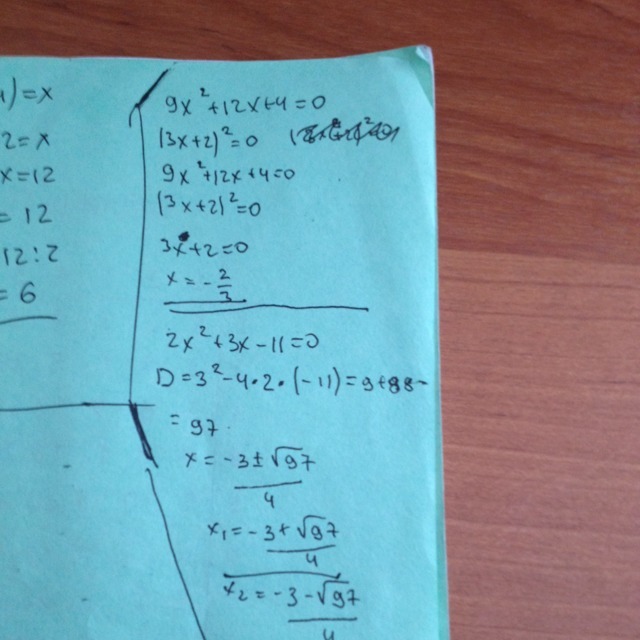 )=x
2=x
x=12
=12
12:2
=6
9x²+12x+4=0
(3x+2)²=0
9x²+12x+4=0
(3x+2)²=0
3x+2=0
x=-2/3
2x²+3x-11=0
D=3²-4·2·(-11)=9+88=
=97
x=-3±√97/4
x₁=-3+√97/4
x₂=-3-√97/4